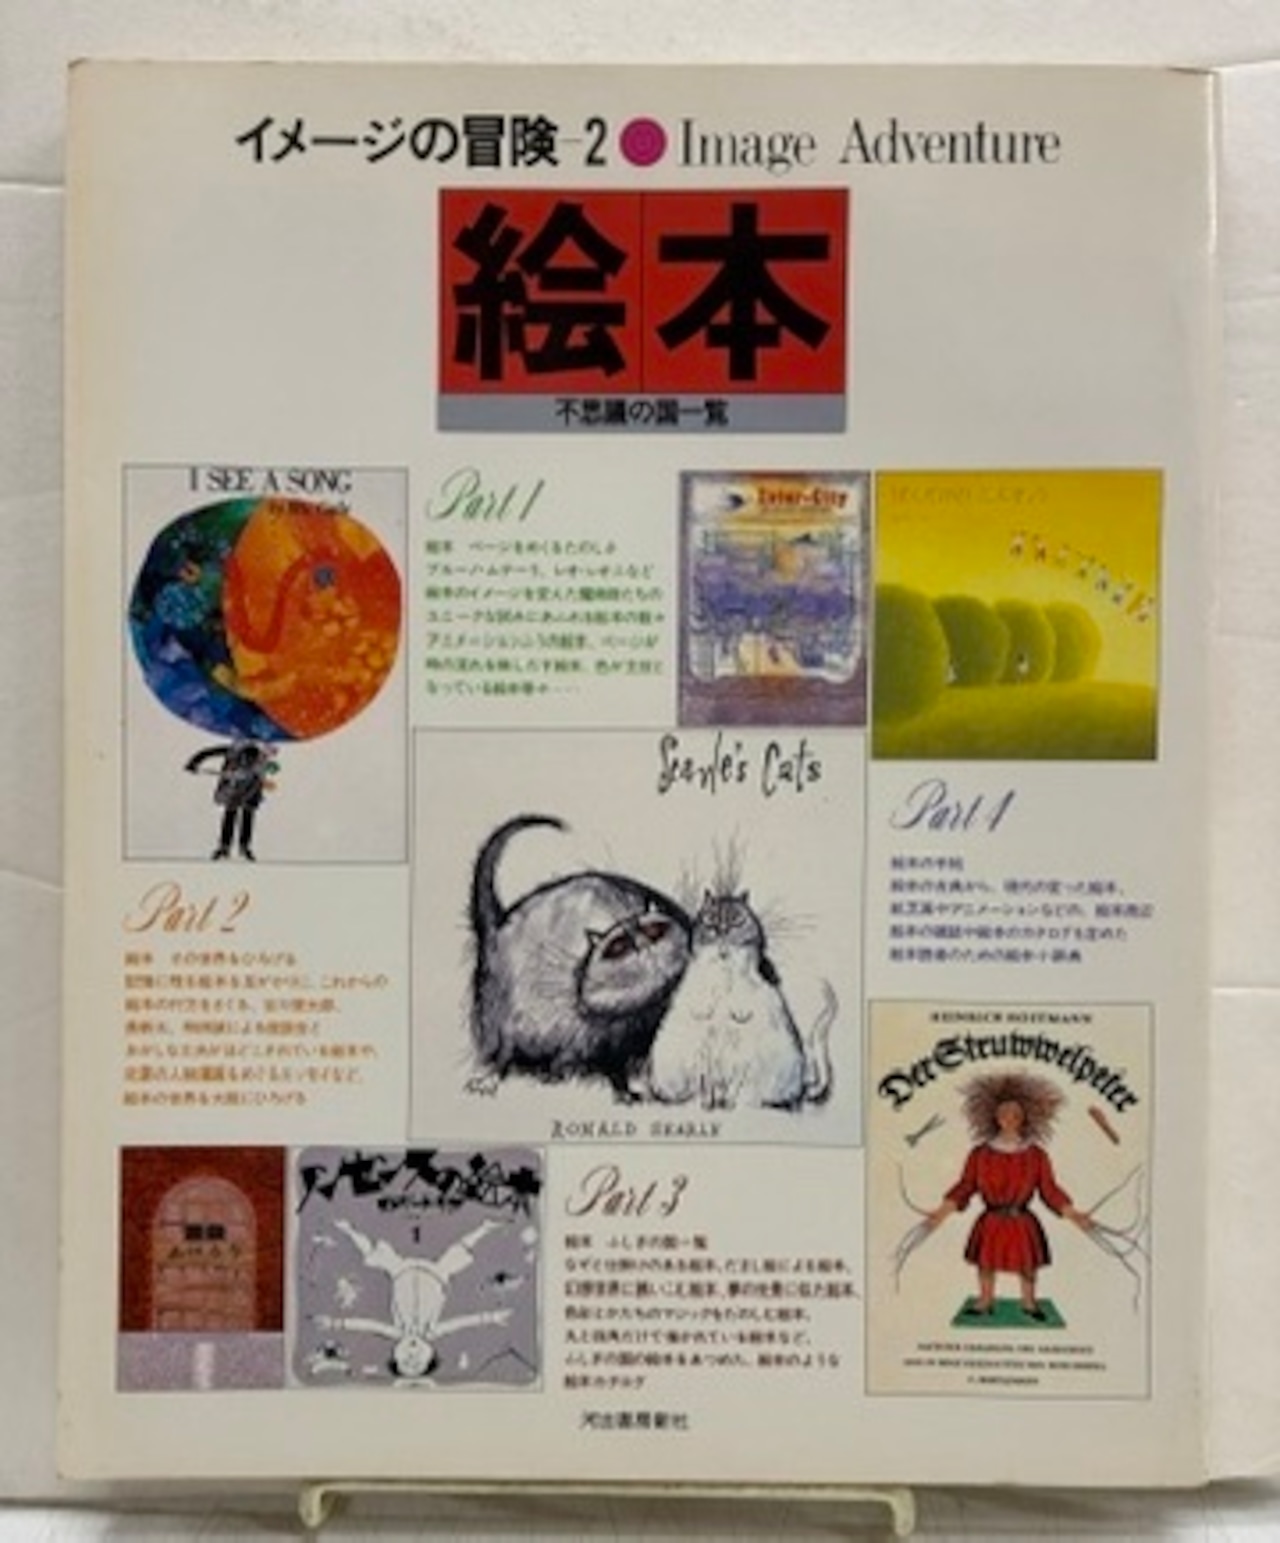 イメージの冒険-2 Image Adventure
絵本
不思議の国一覧
I SEE A SONG
by Eric Carle
Part 1
絵本 ページをめくるたのしみ
ブルーノ・ムナーリ、レオ・レオニなど
絵本のイメージを変えた魔術師たちの
ユニークな試みにあふれる絵本の数々
アニメーションふうの絵本、ページが
時の流れを映しだす絵本、色が主役と
なっている絵本等々……
Inter-City
Searle's Cats
RONALD SEARLE
Part 4
絵本の手帖
絵本の古典から、現代の変った絵本、
紙芝居やアニメーションなどの、絵本周辺
絵本の雑誌や絵本のカタログも含めた
絵本読者のための絵本小辞典
Part 2
絵本 その世界をひろげる
記憶に残る絵本を足がかりに、これからの
絵本の行方をさぐる、谷川俊太郎、
による座談会と
おかしな工夫がほどこされている絵本や、
をめぐるエッセイなど、
絵本の世界を大胆にひろげる
HEINRICH HOFFMANN
Der Struwwelpeter
ナンセンスの絵本
1
Part 3
絵本 ふしぎの国一覧
なぞと仕掛けのある絵本、だまし絵による絵本、
幻想世界に誘いこむ絵本、夢の仕業に似た絵本、
色彩とかたちのマジックをたのしむ絵本、
丸と四角だけで描かれている絵本など、
ふしぎの国の絵本をあつめた、絵本のような
絵本カタログ
河出書房新社